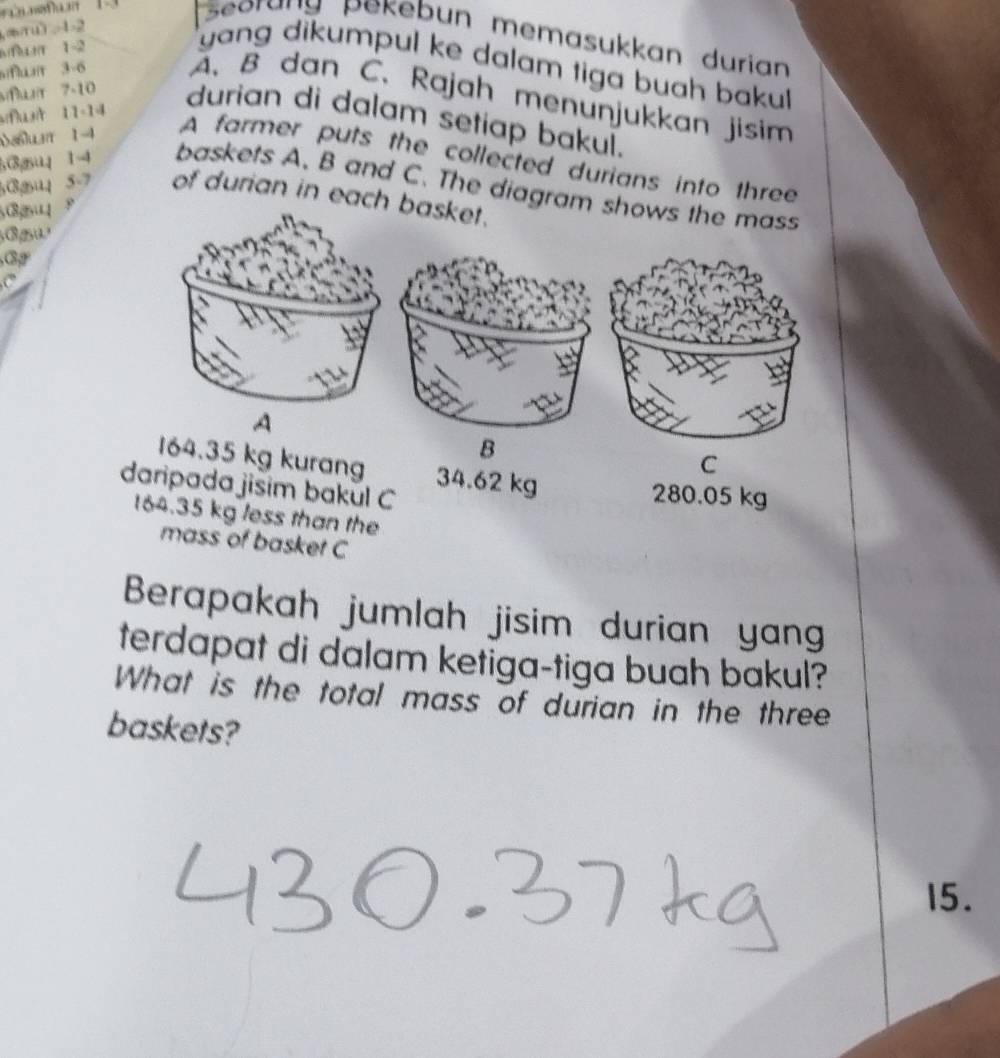 1-2
1-2
3-6
7-10
11-14
1-4
1-4
5-7
pekebun memasukkan durian
yang dikumpul ke dalam tiga buah bakul
A, B dan C. Rajah menunjukkan jisim
durian di dalam setiap bakul.
A farmer puts the collected durians into three
baskets A, B and C. The diagram shows the mass
of durian in each basket.
A
164.35 kg kurang
daripada jisim bakul C
164.35 kg less than the
mass of basket C
B
34.62 kg
C
280.05 kg
Berapakah jumlah jisim durian yang
terdapat di dalam ketiga-tiga buah bakul?
What is the total mass of durian in the three
baskets?
430.37 kg
15.